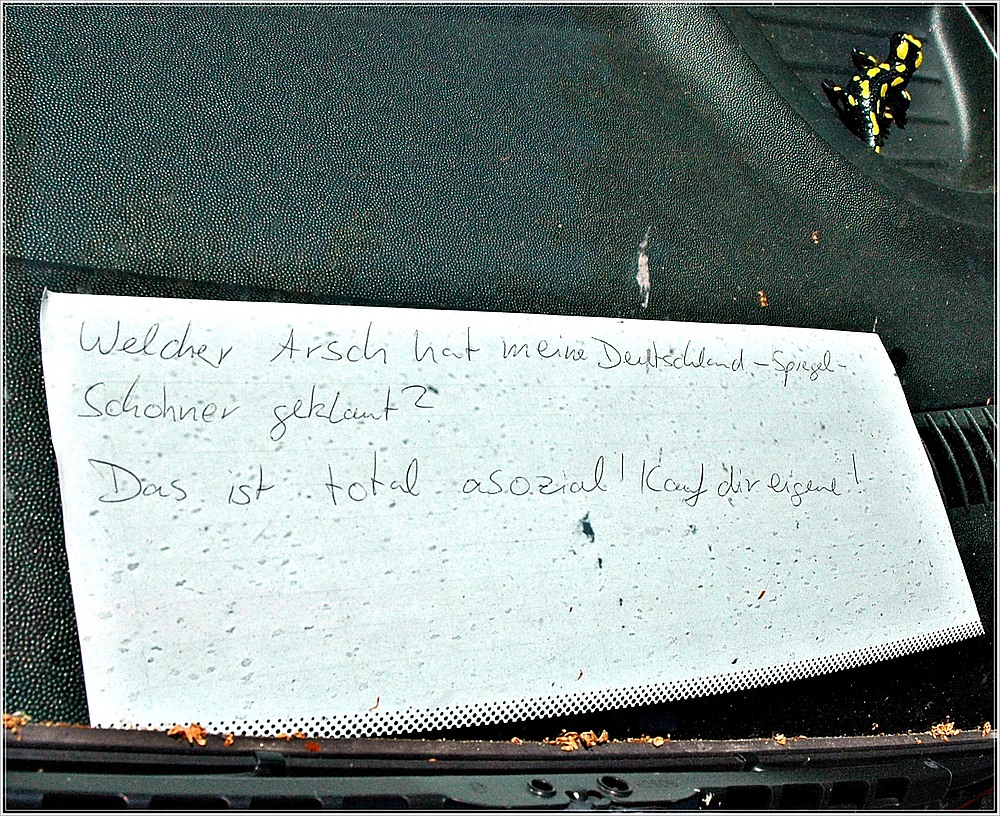 Welcher Arsch hat meine Deutschland-Spiegel-
Schohner geklaut?
Das ist total asozial! Kauf dir eigene!